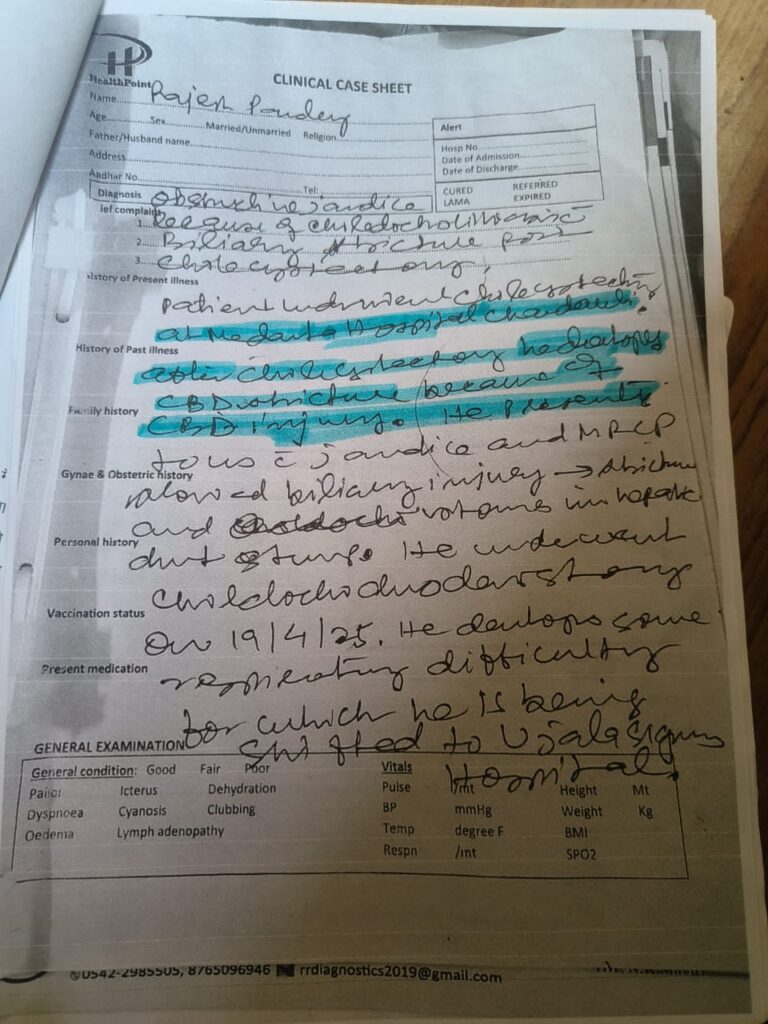 HealthPoint
CLINICAL CASE SHEET
Name Rajesh Pandey
Age Sex Married/Unmarried Religion
Father/Husband name
Address
Aadhar No Tel:
Alert
Hosp No
Date of Admission
Date of Discharge
CURED REFERRED
LAMA EXPIRED
Diagnosis jandice
ief complain
1. because of
2. Biliary stricture post
3. Cholecystectomy,
History of Present illness
Patient underwent
at Medanta Hospital
History of Past illness
after he
CBD stricture because of
Family history
CBD injury. He Presents
to us c̄ jandice and MRCP
Gynae & Obstetric history
showed biliary injury → stricture
and in hepatic
Personal history
duct stump. He underwent
Vaccination status
On 19/4/25. He some
Present medication
difficulty
for which he is being
GENERAL EXAMINATION
shifted to Ujala
Hospital.
General condition: Good Fair Poor
Pallor Icterus Dehydration
Dyspnoea Cyanosis Clubbing
Oedema Lymph adenopathy
Vitals
Pulse /mt Height Mt
BP mmHg Weight Kg
Temp degree F BMI
Respn /mt SPO2
0542-2985505, 8765096946 rrdiagnostics2019@gmail.com